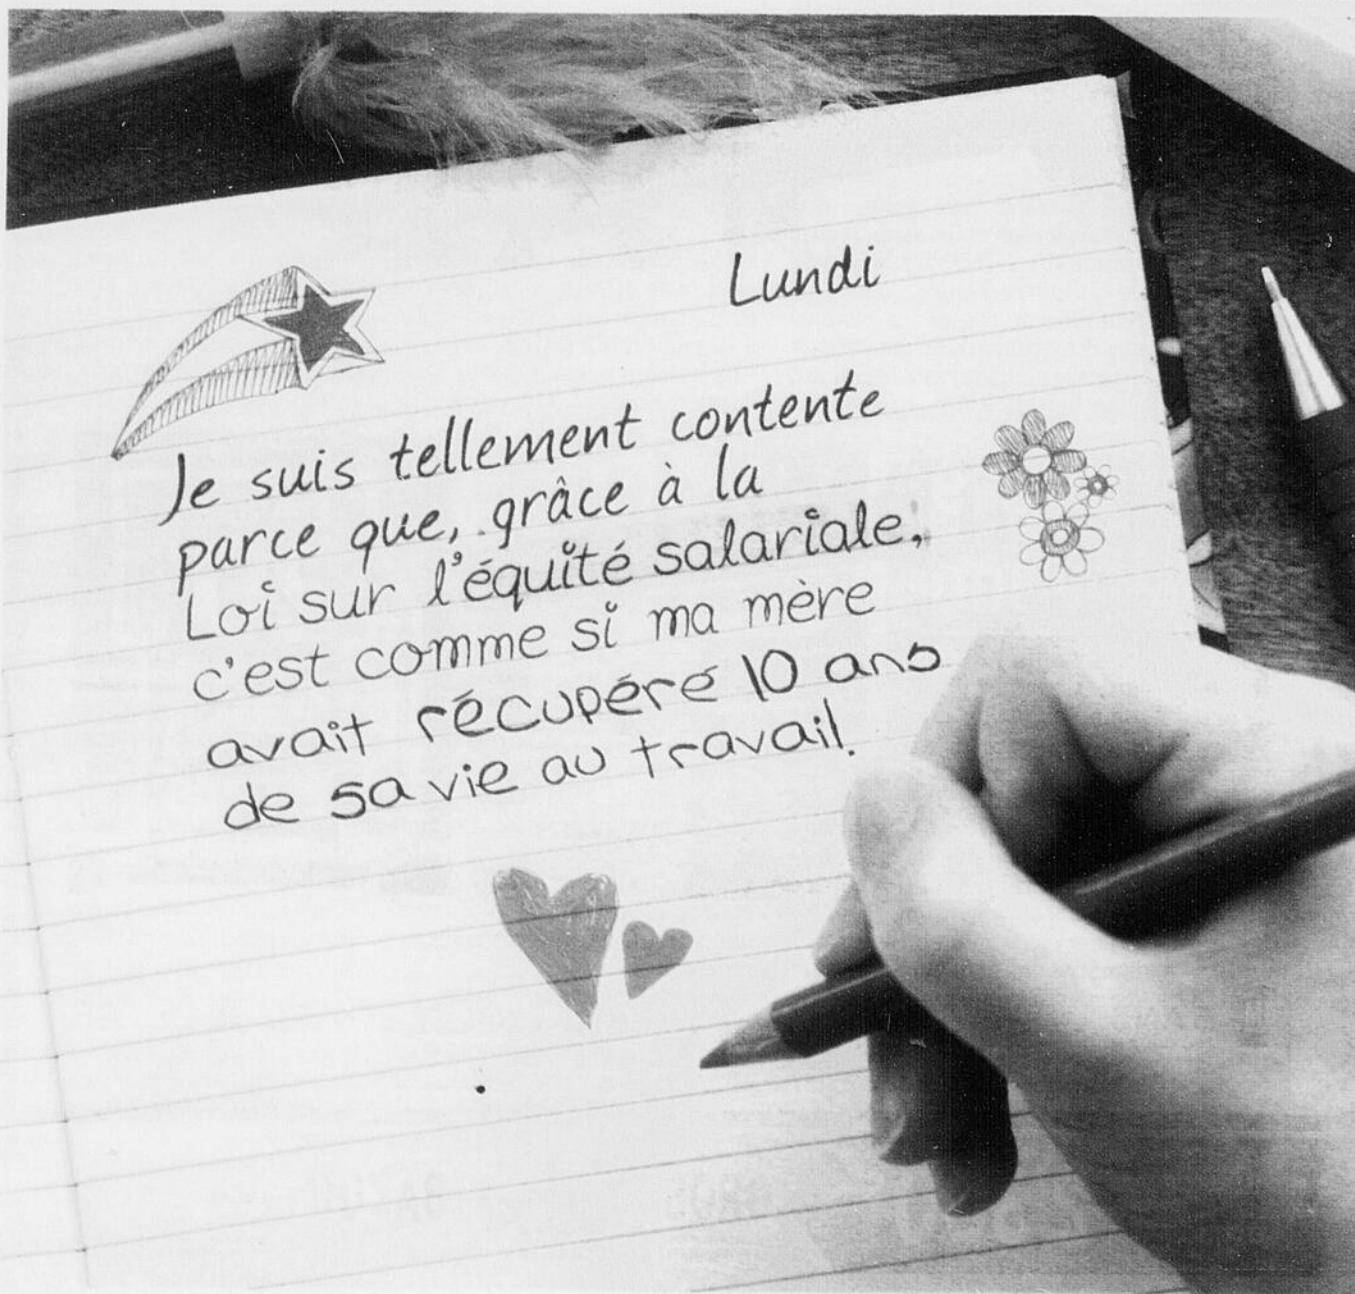 Lundi
Je suis tellement contente
parce que, grâce à la
Loi sur l'équité salariale,
c'est comme si ma mère
avait récupéré 10 ans
de sa vie au travail.